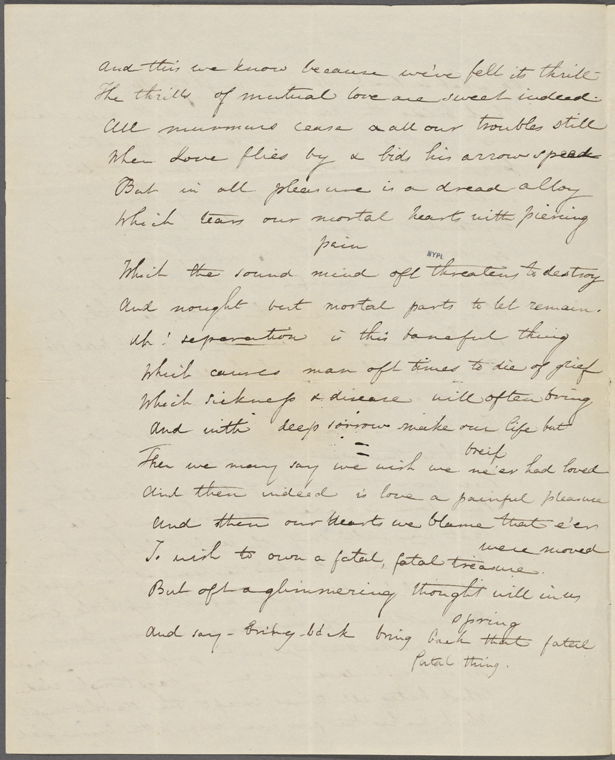 And this we know because we've felt its thrill
The thrills of mutual love are sweet indeed.
All murmurs cease & all our troubles still
When Love flies by & bids his arrow speed
But in all pleasure is a dread alloy
Which tears our mortal hearts with piercing
pain
NYPL
Which the sound mind oft threatens to destroy
And nought but mortal parts to let remain.
Ah! separation is this baneful thing
Which causes man oft times to die of grief
Which sickness & disease will often bring
And with deep sorrow make our life but
breif
Then we many say we wish we ne'er had loved
And then indeed is love a painful pleasure
And then our hearts we blame that e'er
were moved
To wish to own a fatal, fatal treasure.
But oft a glimmering thought will in us
spring
And say - bring back bring back that fatal
fatal thing.